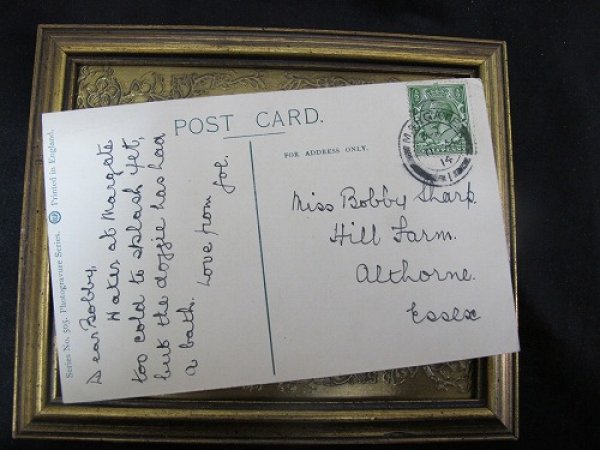 POST CARD.
FOR ADDRESS ONLY.
Series No. 505. Photogravure Series. Printed in England.
Dear Bobby,
Water at Margate
too cold to splash yet,
but the doggie has had
a bath. Love from Joe.
MARGATE
14
1
Miss Bobby Sharp.
Hill Farm.
Althorne.
Essex